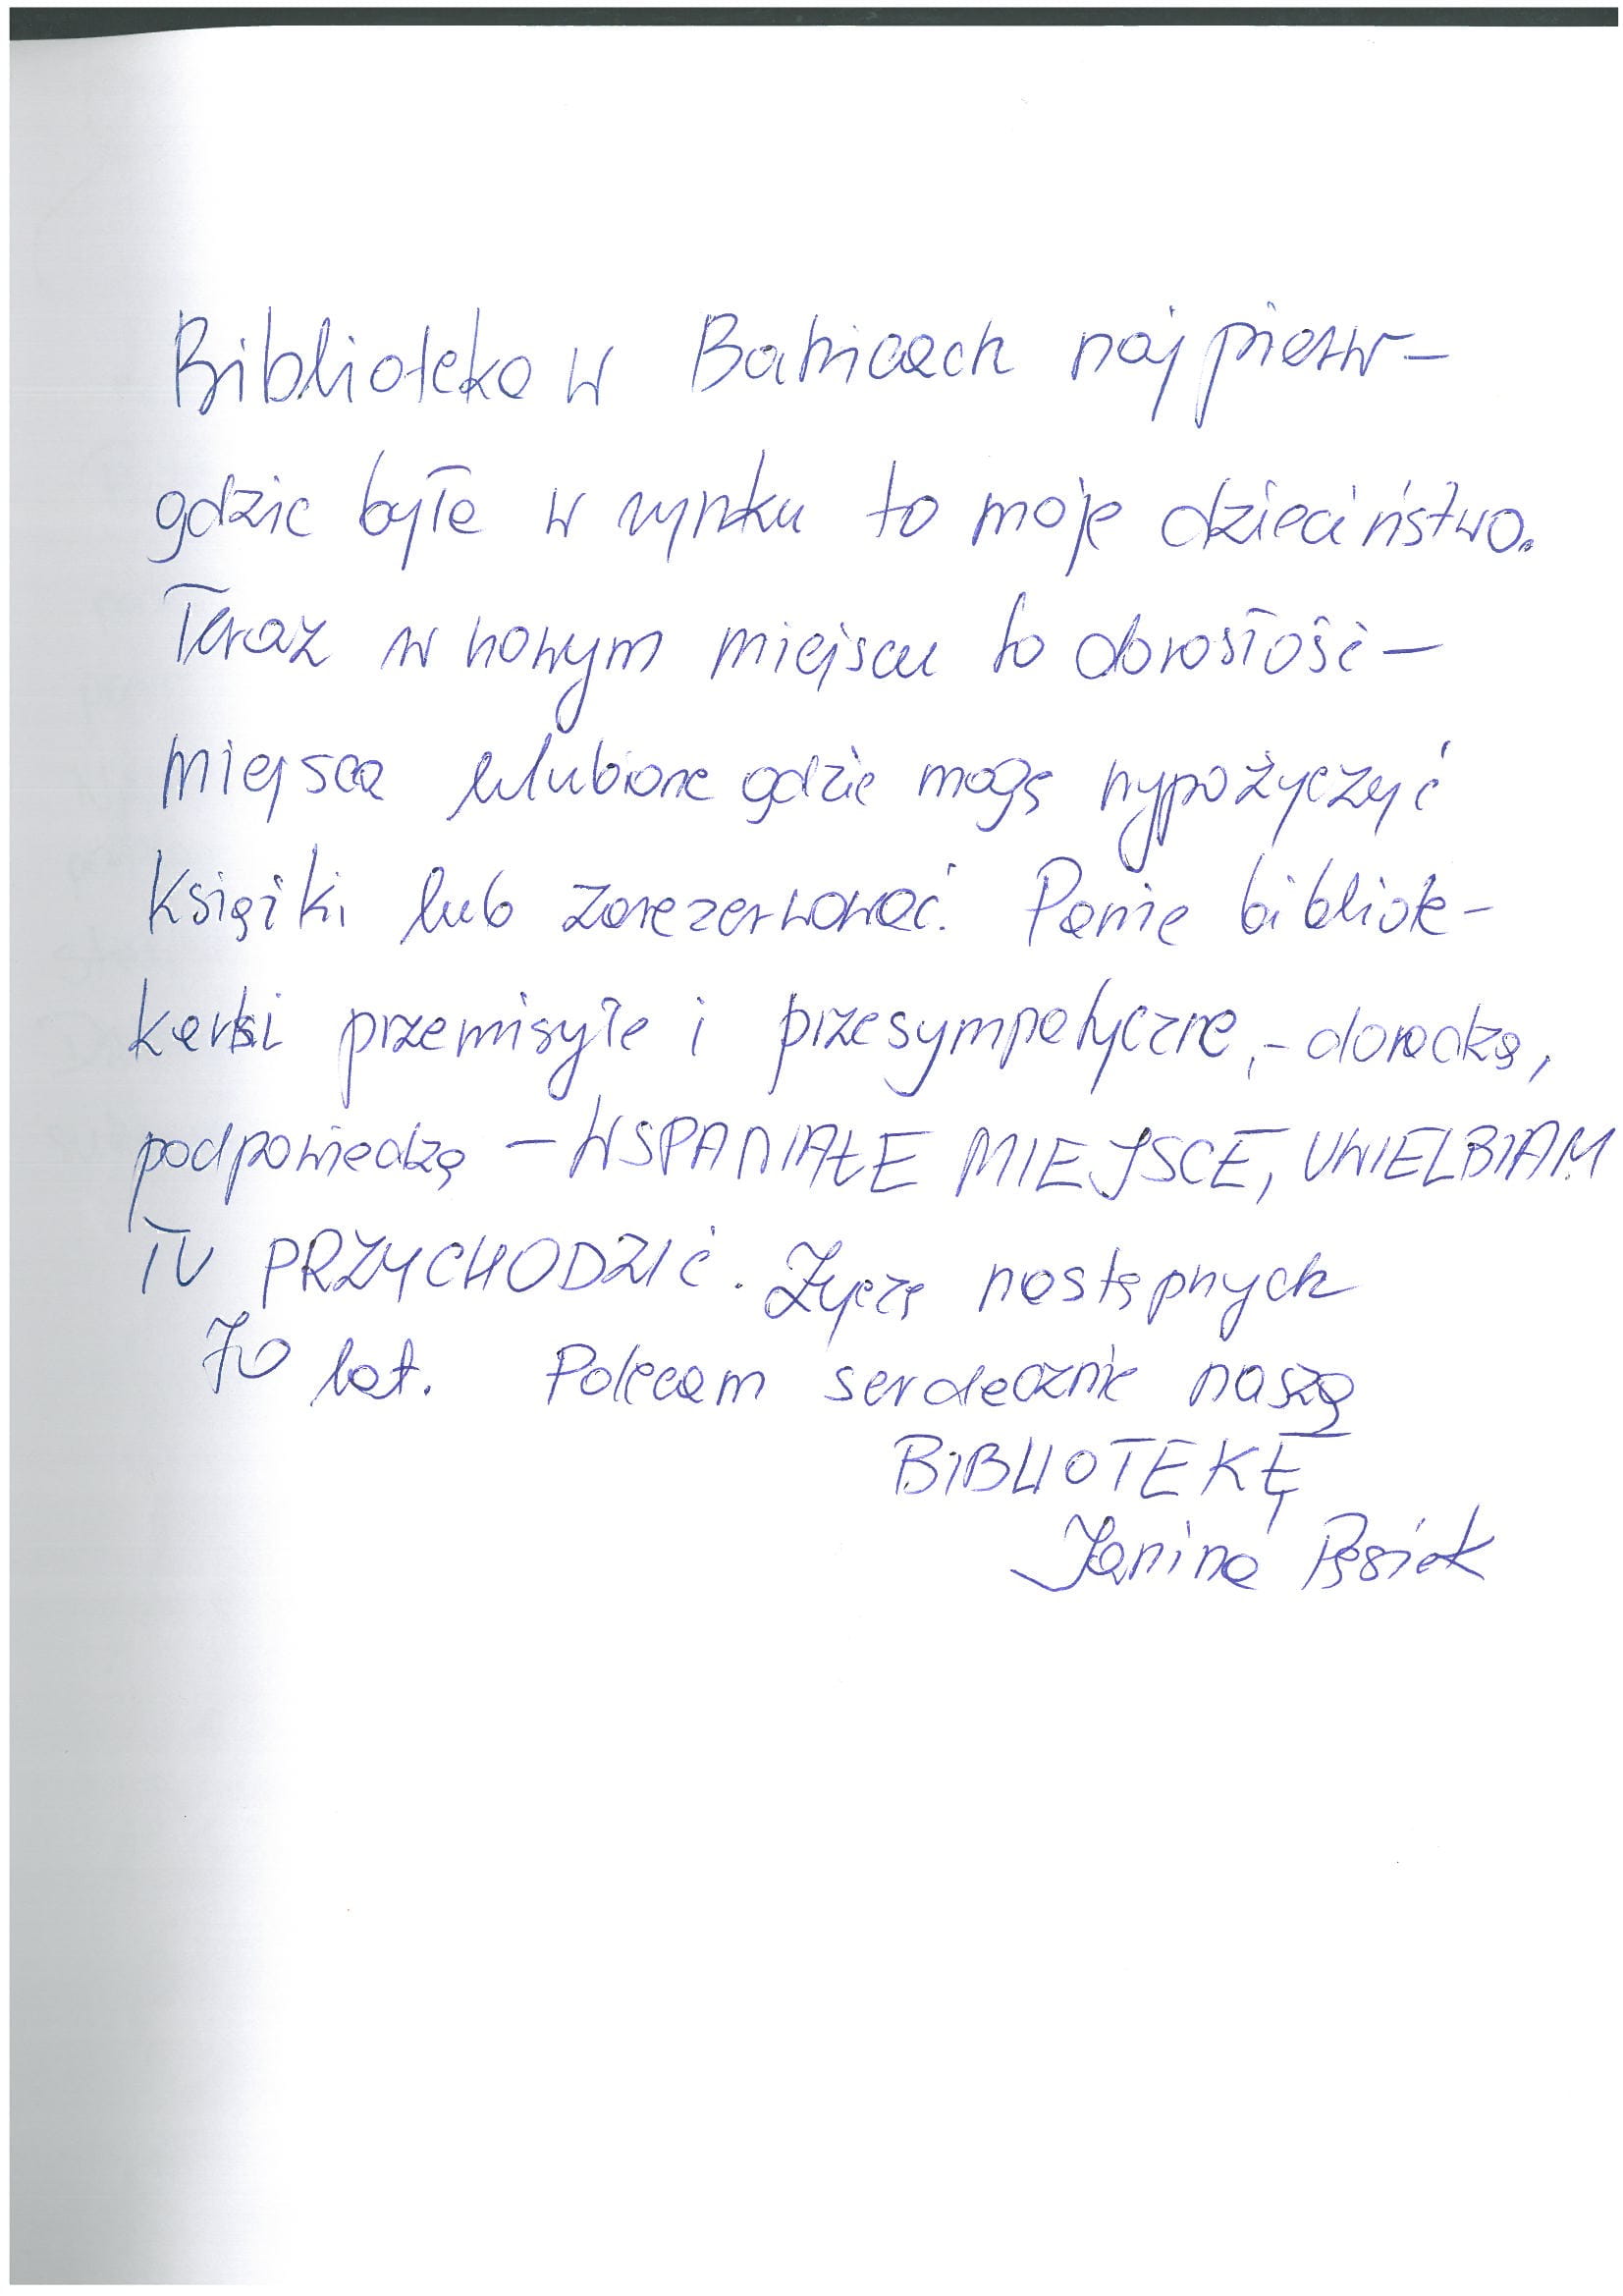 Biblioteka w Babicach najpierw –
gdzie była w rynku to moje dzieciństwo.
Teraz w nowym miejscu to dorosłość –
miejsca ulubione gdzie mogę wypożyczyć
książki lub zarezerwować. Panie bibliote-
karki przemiłe i przesympatyczne, – doradzą,
podpowiedzą – WSPANIAŁE MIEJSCE, UWIELBIAM
TU PRZYCHODZIĆ. Życzę następnych
70 lat. Polecam serdecznie naszą
BIBLIOTEKĘ
Janina